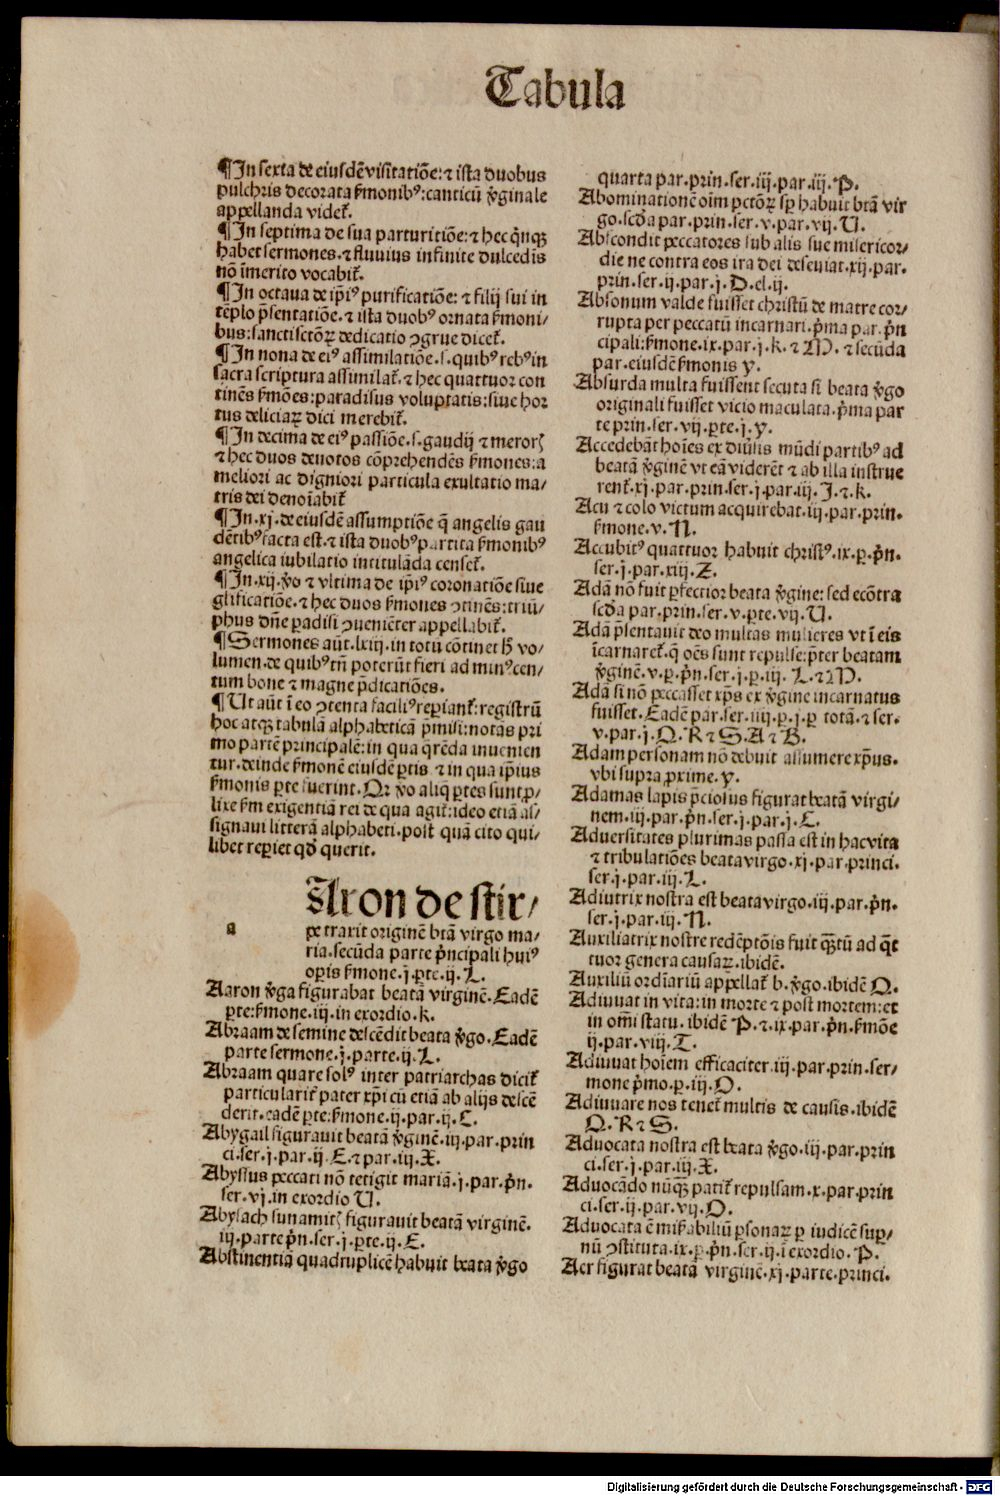 Tabula
¶In sexta de eiusdē visitatiōe: ⁊ ista duobus
pulchris decorata s̄monibꝰ: canticū ṽginale
appellanda videt᷑.
¶In septima de sua parturitiōe: ⁊ hec qͥnqꝫ
habet sermones. ⁊ fluuius infinite dulcedīs
nō īmerito vocabit᷑.
¶In octaua de ip̄iꝰ purificatiōe: ⁊ filij sui in
tēplo p̄sentatiōe. ⁊ ista duobꝰ ornata s̄moni⸗
bus: sancti sctōꝝ dedicatio ꝯgrue dicet᷑.
¶In nona de eiꝰ assimilatiōe. s. quibꝰ rebꝰ in
sacra scriptura assimilat᷑. ⁊ hec quattuor con
tinēs s̄mōes: paradisus voluptatis: siue hor
tus deliciaꝝ dici merebit᷑.
¶In decima de eiꝰ passiōe. s. gaudij ⁊ meroꝝ
⁊ hec duos deuotos cōprehendēs s̄mones: a
meliori ac digniori particula exultatio ma⸗
tris dei denoīabit᷑
¶In. xj. de eiusdē assumptiōe q̄ angelis gau
dētibꝰ facta est. ⁊ ista duobꝰ partita s̄monibꝰ
angelica iubilatio intitulāda censet᷑.
¶In. xij. ṽo ⁊ vltima de ip̄iꝰ coronatiōe siue
glīficatiōe. ⁊ hec duos s̄mones ꝯtinēs: triū⸗
phus dn̄e paradisi ꝯueniēter appellabit᷑.
¶Sermones aūt. lxiij. in totū cōtinet hꝫ vo⸗
lumen. de quibꝰ tn̄ poterūt fieri ad minꝰ cen⸗
tum bone ⁊ magne p̄dicatiōes.
¶Ut aūt ī eo ꝯtenta faciliꝰ reperiant᷑: registrū
hoc atqꝫ tabulā alphabeticā p̄misi: notās pri
mo partē principalē: in qua q̄rēda inuenien
tur. deinde s̄monē eiusdē ꝑtis ⁊ in qua ip̄ius
s̄monis ꝑte fuerint. Qꝛ ṽo aliq̄ ꝑtes sunt ꝓ⸗
lixe s̄m exigentiā rei de qua agit᷑: ideo etiā as⸗
signaui litterā alphabeti. post quā cito qui⸗
libet reperiet qd̄ querit.
a
Aron de stir⸗
pe traxit originē btā virgo ma⸗
ria. secūda parte pͥncipali huiꝰ
opis s̄mone. j. ꝑte. ij. L.
Aaron ṽga figurabat beatā virginē. Eadē
ꝑte: s̄mone. iij. in exordio. k.
Abraam de semine descēdit beata ṽgo. Eadē
parte sermone. j. parte. ij. L.
Abraam quare solꝰ inter patriarchas dicit᷑
particularit᷑ pater xp̄i cū etiā ab alijs descē
derit. eadē ꝑte: s̄mone. ij. par. ij. C.
Abygail figurauit beatā ṽginē. iij. par. prin
ci. ser. j. par. ij. E. ⁊ par. iij. X.
Abyssus peccati nō tetigit mariā. j. par. pͥn.
ser. vj. in exordio U.
Abysach sunamitꝭ figurauit beatā virginē.
iij. parte pͥn. ser. j. ꝑte. ij. E.
Abstinentiā quadruplicē habuit beata ṽgo
quarta par. prin. ser. iij. par. iij. P.
Abominationē oīm pctōꝝ sp̄ habuit btā vir
go. scd̄a par. prin. ser. v. par. vij. U.
Abscondit peccatores sub alis sue misericor⸗
die ne contra eos ira dei deseuiat. xij. par.
prin. ser. ij. par. j. D. el. ij.
Absonum valde fuisset christū de matre cor⸗
rupta per peccatū incarnari. pͥma par. pͥn
cipali: s̄mone. ix. par. j. k. ⁊ M. ⁊ secūda
par. eiusdē s̄monis y.
Absurda multa fuissent secuta si beata ṽgo
originali fuisset vicio maculata. pͥma par
te prin. ser. vij. ꝑte. j. y.
Accedebāt hoīes ex diūsis mūdi partibꝰ ad
beatā ṽginē vt eā viderēt ⁊ ab illa instrue
rent᷑. xj. par. prin. ser. j. par. iij. J. ⁊. k.
Acu ⁊ colo victum acquirebat. iij. par. prin.
s̄mone. v. N.
Accubitꝰ quattuor habuit christꝰ. ix. ꝑ. pͥn.
ser. j. par. xiij. Z.
Adā nō fuit ꝑfectior beata ṽgine: sed ecōtra
scd̄a par. prin. ser. v. ꝑte. vij. U.
Adā p̄sentauit deo multas mulieres vt ī eis
īcarnaret᷑. q̄ oēs sunt repulse: p̄ter beatam
ṽginē. v. ꝑ. pͥn. ser. j. ꝑ. iij. L. ⁊ M.
Adā si nō peccasset xp̄s ex ṽgine incarnatus
fuisset. Eadē par. ser. iiij. ꝑ. j. ꝑ totā. ⁊ ser.
v. par. j. Q. R ⁊ S. A ⁊ B.
Adam personam nō debuit assumere xp̄us.
vbi supra ꝓxime. y.
Adamas lapis p̄ciosus figurat beatā virgi⸗
nem. iij. par. pͥn. ser. j. par. j. C.
Aduersitates plurimas passa est in hac vita
⁊ tribulatiōes beata virgo. xj. par. princi.
ser. j. par. iij. L.
Adiutrix nostra est beata virgo. iij. par. pͥn.
ser. j. par. iij. N.
Auxiliatrix nostre redēptōis fuit qꝫtū ad q̄t
tuor genera causaꝝ. ibidē.
Auxiliū ordīariū appellat᷑ b. ṽgo. ibidē Q.
Adiuuat in vita: in morte ⁊ post mortem: et
in om̄i statu. ibidē P. ⁊. ix. par. pͥn. s̄mōe
ij. par. viij. T.
Adiuuat hoīem efficaciter. iij. par. prin. ser⸗
mone pͥmo. ꝑ. iij. O.
Adiuuare nos tenet᷑ multis de causis. ibidē
Q. R ⁊ S.
Aduocata nostra est beata ṽgo. iij. par. prin
ci. ser. j. par. iij. X.
Aduocādo nūqꝫ patit᷑ repulsam. x. par. prin
ci. ser. ij. par. vij. O.
Aduocata ē mis̄abiliū ꝑsonaꝝ ꝑ iudicē suꝑ⸗
nū ꝯstituta. ix. ꝑ. pͥn. ser. ij. ī exordio. P.
Aer figurat beatā virginē. xj. parte. princi.
Digitalisierung gefördert durch die Deutsche Forschungsgemeinschaft - DFG